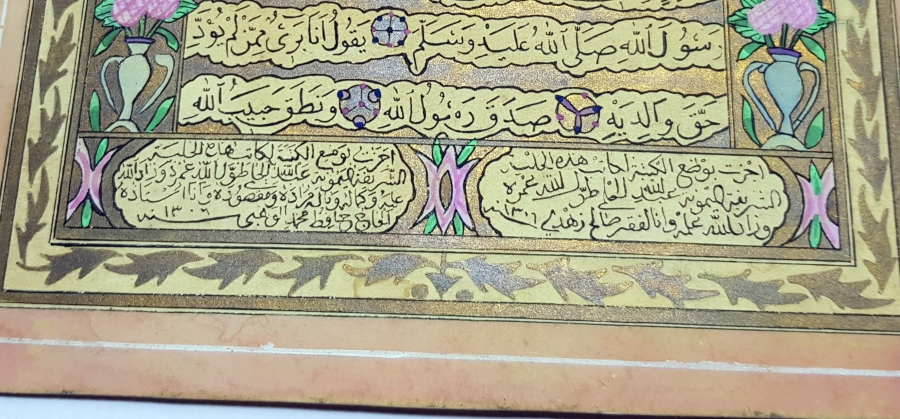 سول الله صلى الله عليه وسلم يقول انا برئ ممن لم يؤد
حق والديه صدق رسول الله ونطق حبيب الله
اجزت بوضع الكتبة لكاتب هذه الحلية
الشريفة عبد الله حلمى طول الله عمره
وزاد الله عمله وانا الفقير صالح زهدي سنه ١٣٠٦
اجزت بوضع الكتبة لكاتب هذه الحلية
الشريفة عبد الله حلمى طول الله عمره وزاد الله
عمله وكماله ومقصوده وانا استاده
الحاج حافظ محمد وهبى سنه ١٣٠٦